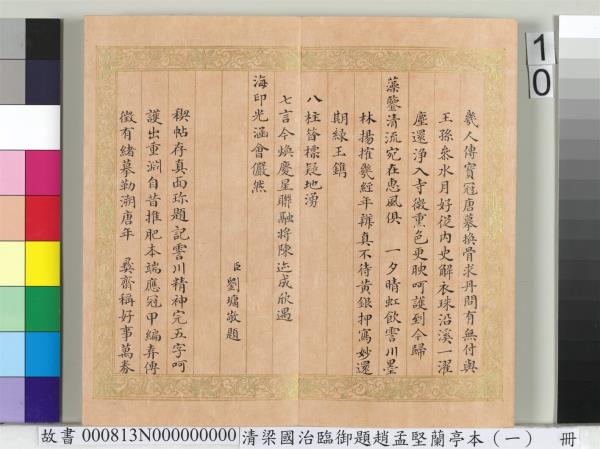 幾人傳寶冠唐摹換骨求丹問有無付與
王孫參水月好從內史解衣珠沿溪一濯
塵還淨入寺微熏色更腴呵護到今歸
藻鑒清流宛在惠風俱 一夕晴虹飲霅川墨
林揚搉幾經年辨真不待黃銀押寫妙還
期綠玉鐫
八柱皆標疑地湧
七言今煥慶星聯融將陳迹成欣遇
海印光涵會儼然
臣劉墉敬題
稧帖存真面珎題記霅川精神完五字呵
護出重淵自昔推肥本端應冠甲編弆傳
徵有緒摹勒溯唐年 彝齋稱好事萬劵
10
故書 000813N000000000 清梁國治臨御題趙孟堅蘭亭本(一) 冊